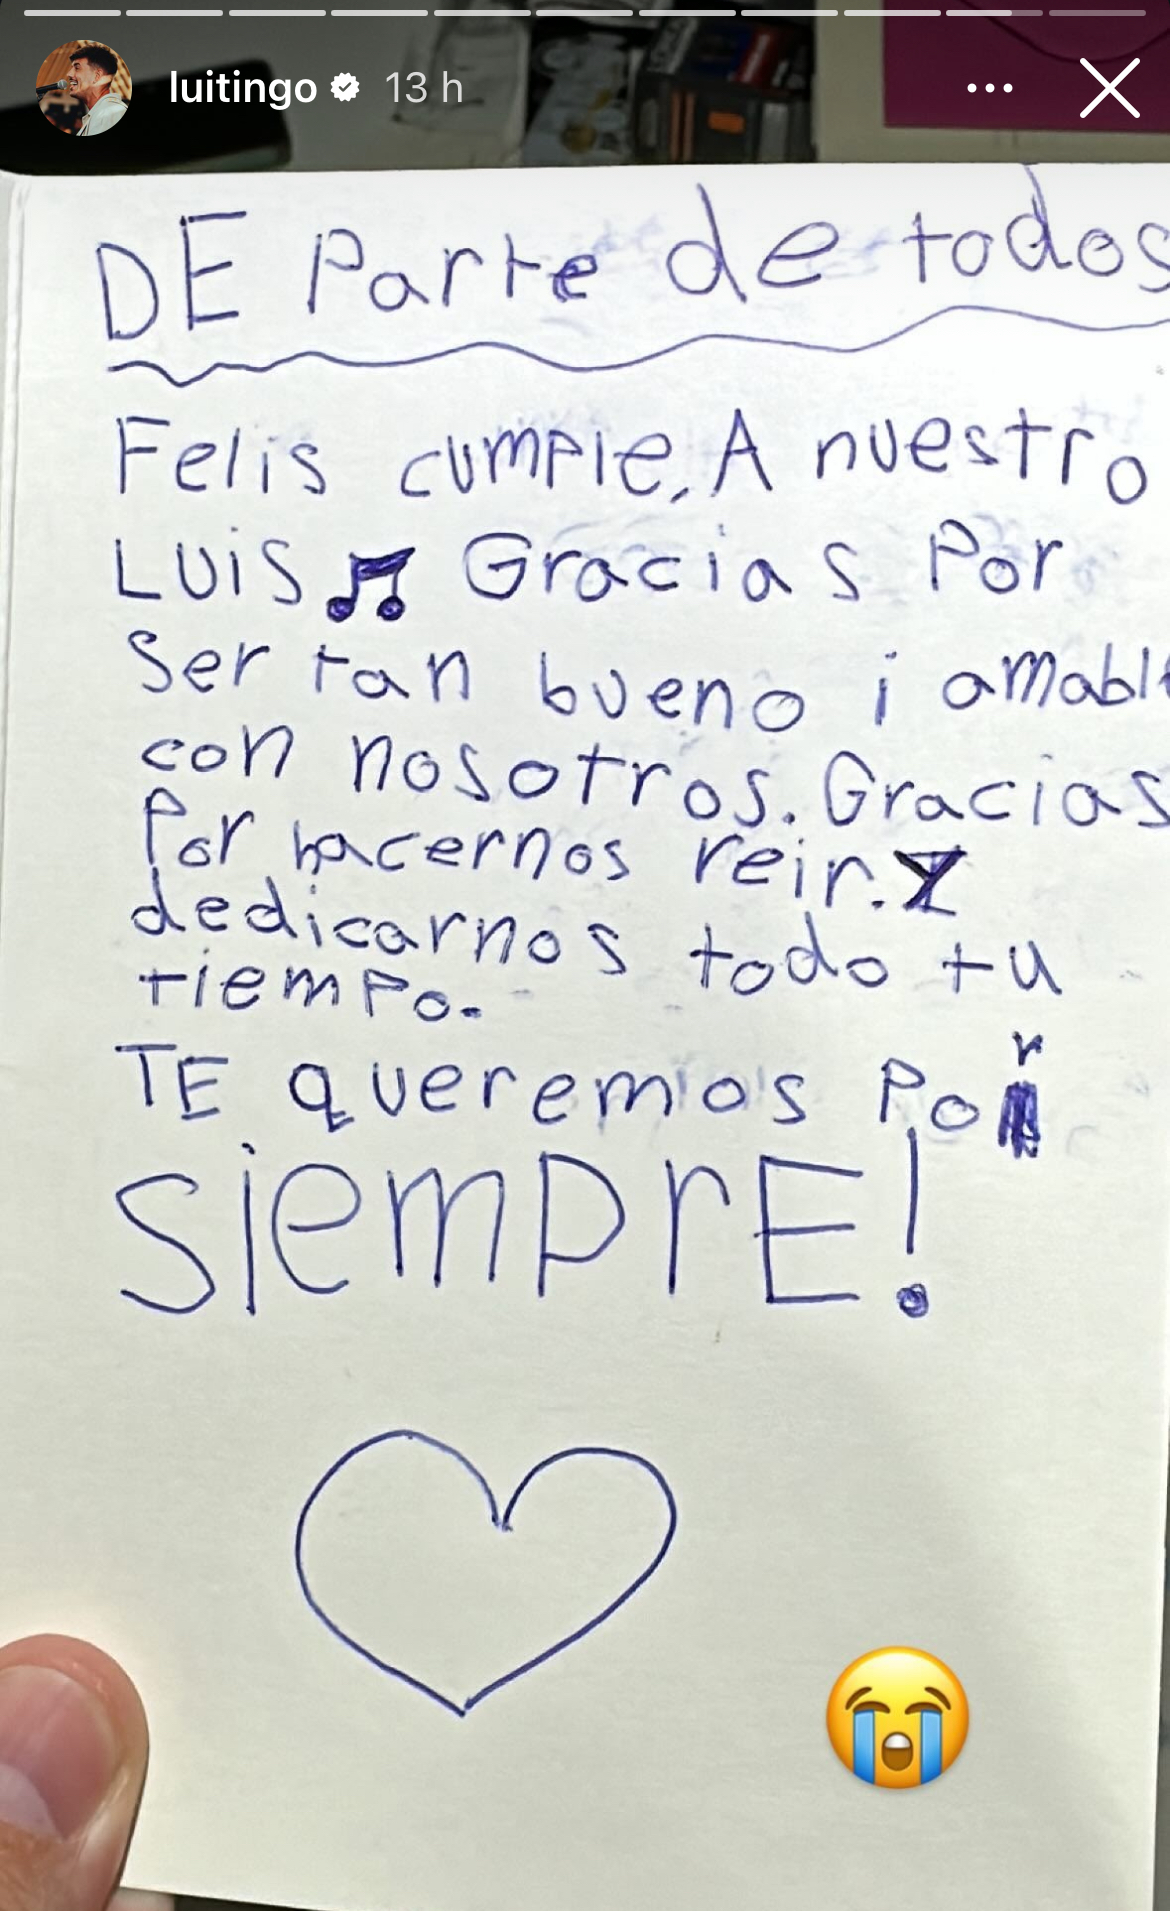 luitingo 13 h
DE Parte de todos
Felis cumple, A nuestro
LUiS Gracias Por
Ser tan bueno i amable
con nosotros. Gracias
Por hacernos reir. Y
dedicarnos todo tu
tiempo.
TE queremos Por
SiemprE!